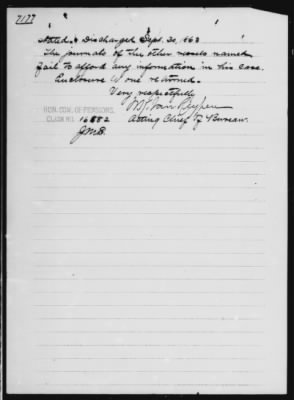 7177
stated, & discharged Sept. 30, 1863.
The journals of the other vessels named
fail to afford any information in his case.
Enclosure is one returned.
Very respectfully
Acting Chief of Bureau.
HON. COM. OF PENSIONS.
CLAIM NO. 16882